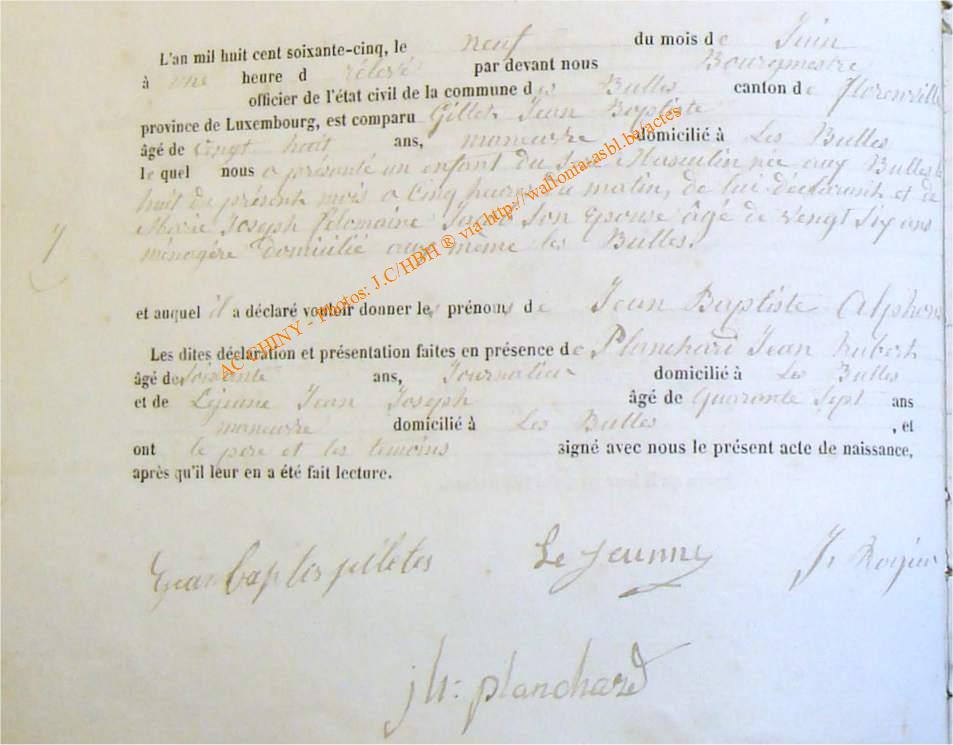 L'an mil huit cent soixante-cinq, le neuf du mois de Juin
à une heure d relevé par devant nous Bourgmestre
officier de l'état civil de la commune des Bulles canton de Florenville
province de Luxembourg, est comparu Gillet Jean Baptiste
âgé de vingt huit ans, maneuvre domicilié à Les Bulles
lequel nous a présenté un enfant du Masculin née aux Bulles
huit de présent mois a Cinq heures du matin, de lui déclarant et de
Marie Joseph Son Epouse âgé de vengt Six ans
ménagère Domicilié même les Bulles.
et auquel il a déclaré vouloir donner les prénoms de Jean Baptiste Alphons
Les dites déclaration et présentation faites en présence de Planchard Jean hubert
âgé de Soixante ans, Journalier domicilié à Les Bulles
et de Lejeune Jean Joseph âgé de Quarante Sept ans
maneuvre domicilié à Les Bulles , et
ont le père et les temoins signé avec nous le présent acte de naissance,
après qu'il leur en a été fait lecture.
Le Jeunne
J. Rogier
jh: planchard
AC CHINY - Photos: J.C/HBH ® via http://wallonia-asbl.be/actes